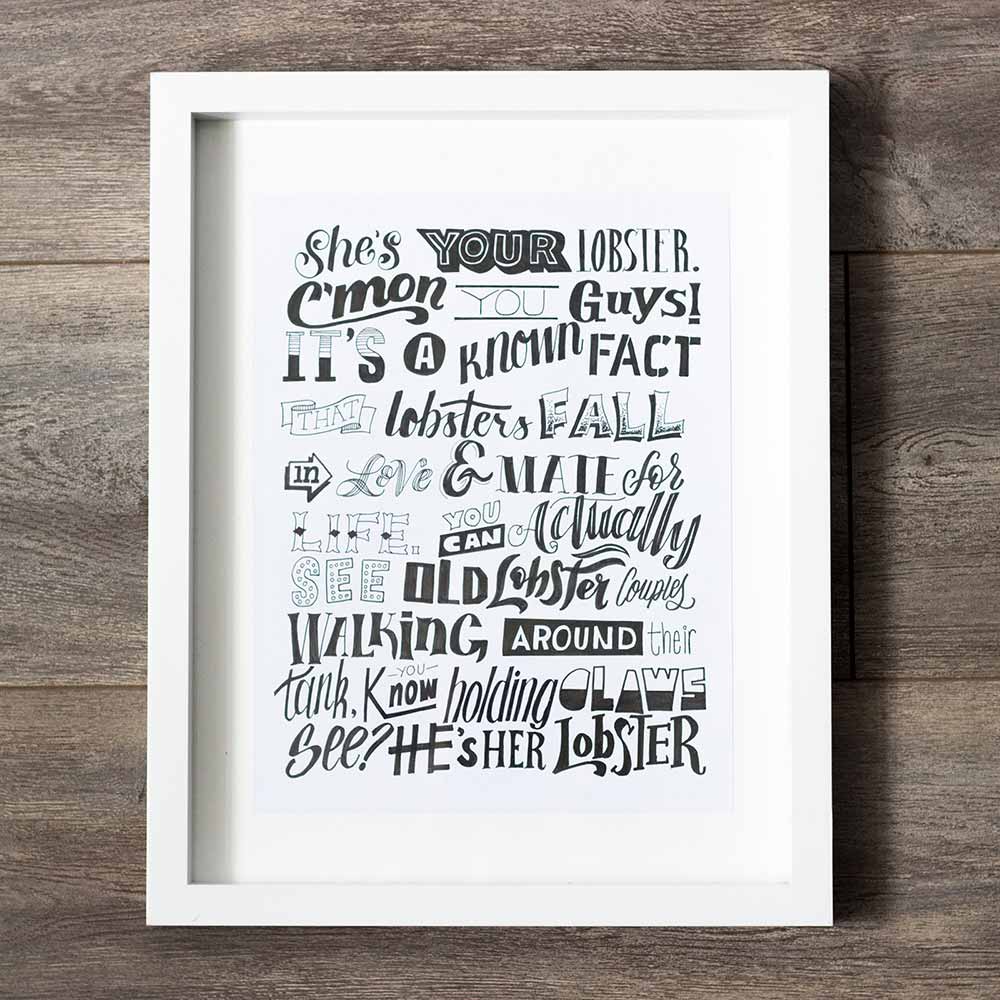 She's YOUR LOBSTER.
C'mon YOU Guys!
IT'S A KNOWN FACT
THAT lobsters FALL
in Love & MATE for
LIFE. YOU CAN Actually
SEE OLD Lobster Couples
WALKING AROUND their
tank, YOU Know holding CLAWS
See? HE'S HER LOBSTER